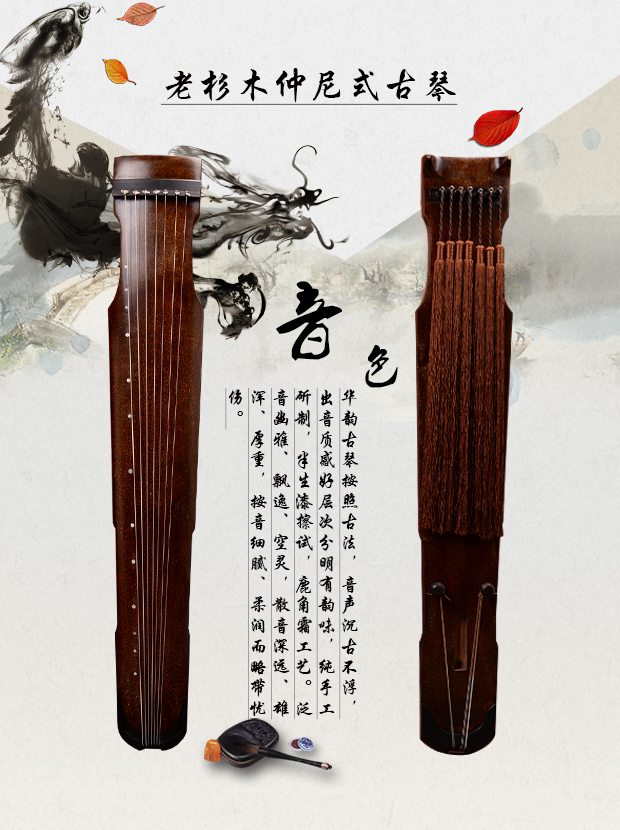 老杉木仲尼式古琴
音
色
华韵古琴按照古法，音声沉古不浮，
出音质感好层次分明有韵味，纯手工
研制，半生漆擦试，鹿角霜工艺。泛
音幽雅、飘逸、空灵，散音深远、雄
浑、厚重，按音细腻、柔润而略带忧
伤。